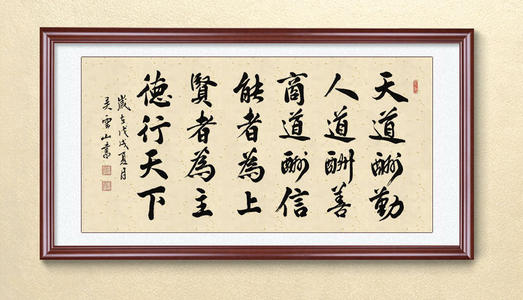 天道酬勤
人道酬善
商道酬信
能者為上
賢者為主
德行天下
歲在戊戌夏月
吴雲山書